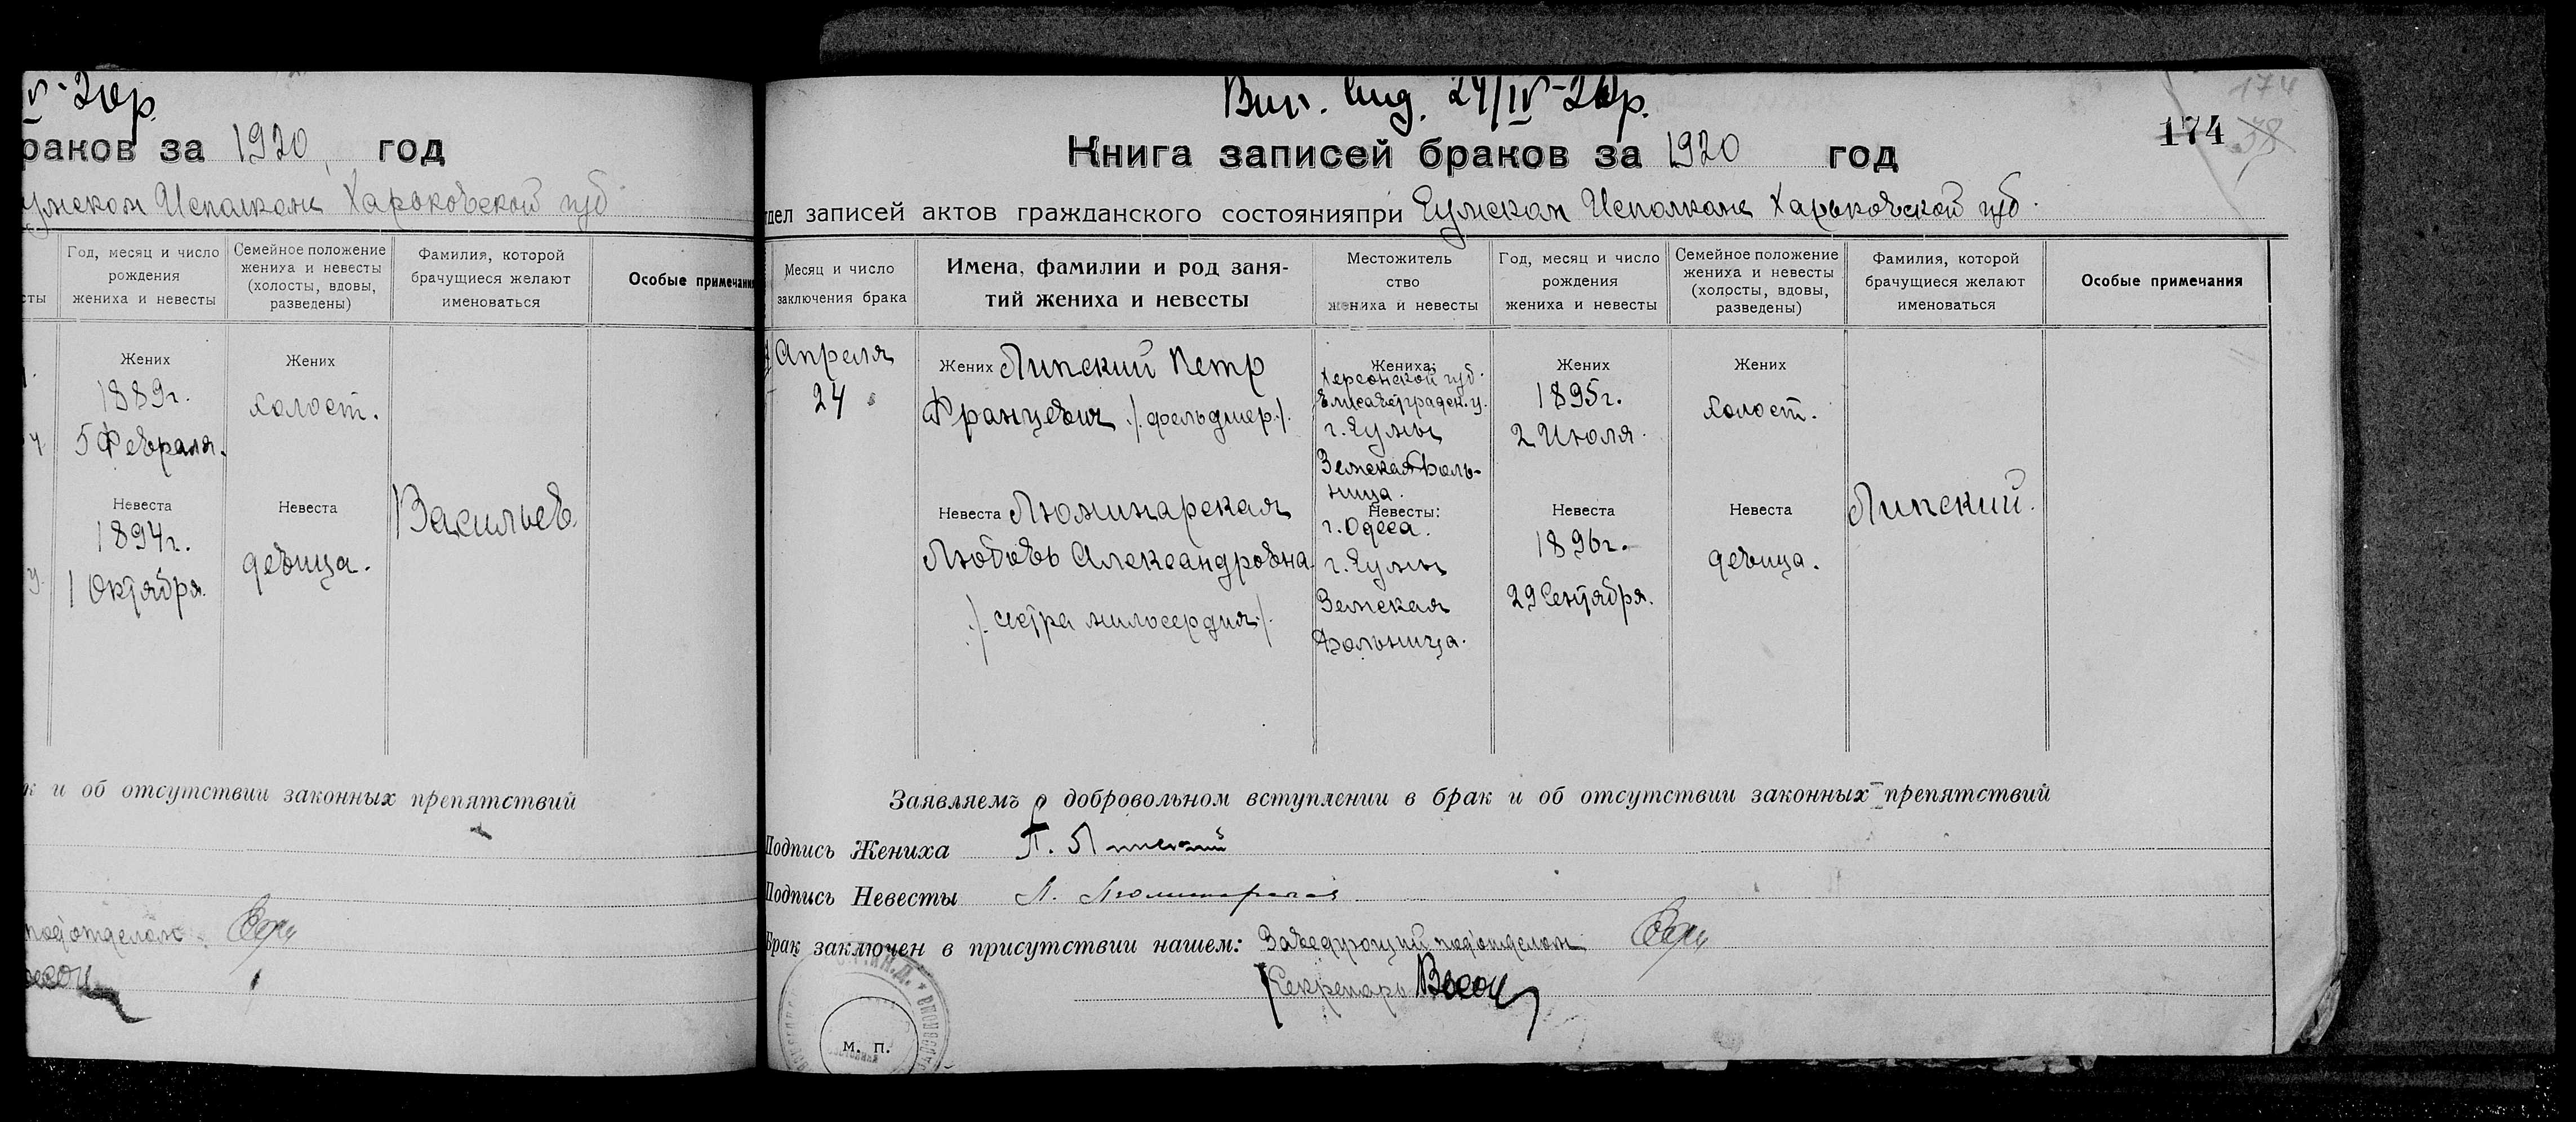 раков за 1920 год
Исполкоме Харьковской губ.
Год, месяц и число
рождения
жениха и невесты
Семейное положение
жениха и невесты
(холосты, вдовы,
разведены)
Фамилия, которой
брачущиеся желают
именоваться
Особые примечания
Жених
1889г.
5 Февраля.
Жених
холост.
Невеста
1894г.
1 Октября.
Невеста
девица.
Васильев
к и об отсутствии законных препятствий
подотделом
24/IV-20р.
174
174
38
Книга записей браков за 1920 год
тдел записей актов гражданского состоянияпри Сумском Исполкоме Харьковской губ.
Месяц и число
заключения брака
Имена, фамилии и род заня-
тий жениха и невесты
Местожитель
ство
жениха и невесты
Год, месяц и число
рождения
жениха и невесты
Семейное положение
жениха и невесты
(холосты, вдовы,
разведены)
Фамилия, которой
брачущиеся желают
именоваться
Особые примечания
Апреля
24
Жених Липский Петр
Францевич ./. фельдшер ./.
Невеста Люминарская
Любовь Александровна
./. сестра милосердия ./.
Жениха:
Херсонской губ.
Елисаветградск. у.
г. Сумы
Земская Боль-
ница.
Невесты:
г. Одеса.
г. Сумы
Земская
Больница.
Жених
1895г.
2 Июля.
Невеста
1896г.
29 Сентября.
Жених
холост.
Невеста
девица.
Липский.
Заявляемъ о добровольном вступлении в брак и об отсутствии законных препятствий
Подпись Жениха П. Липский
Подпись Невесты Л. Люминарская
Брак заключен в присутствии нашем: Заведующий подотделом
Секретарь
м. п.